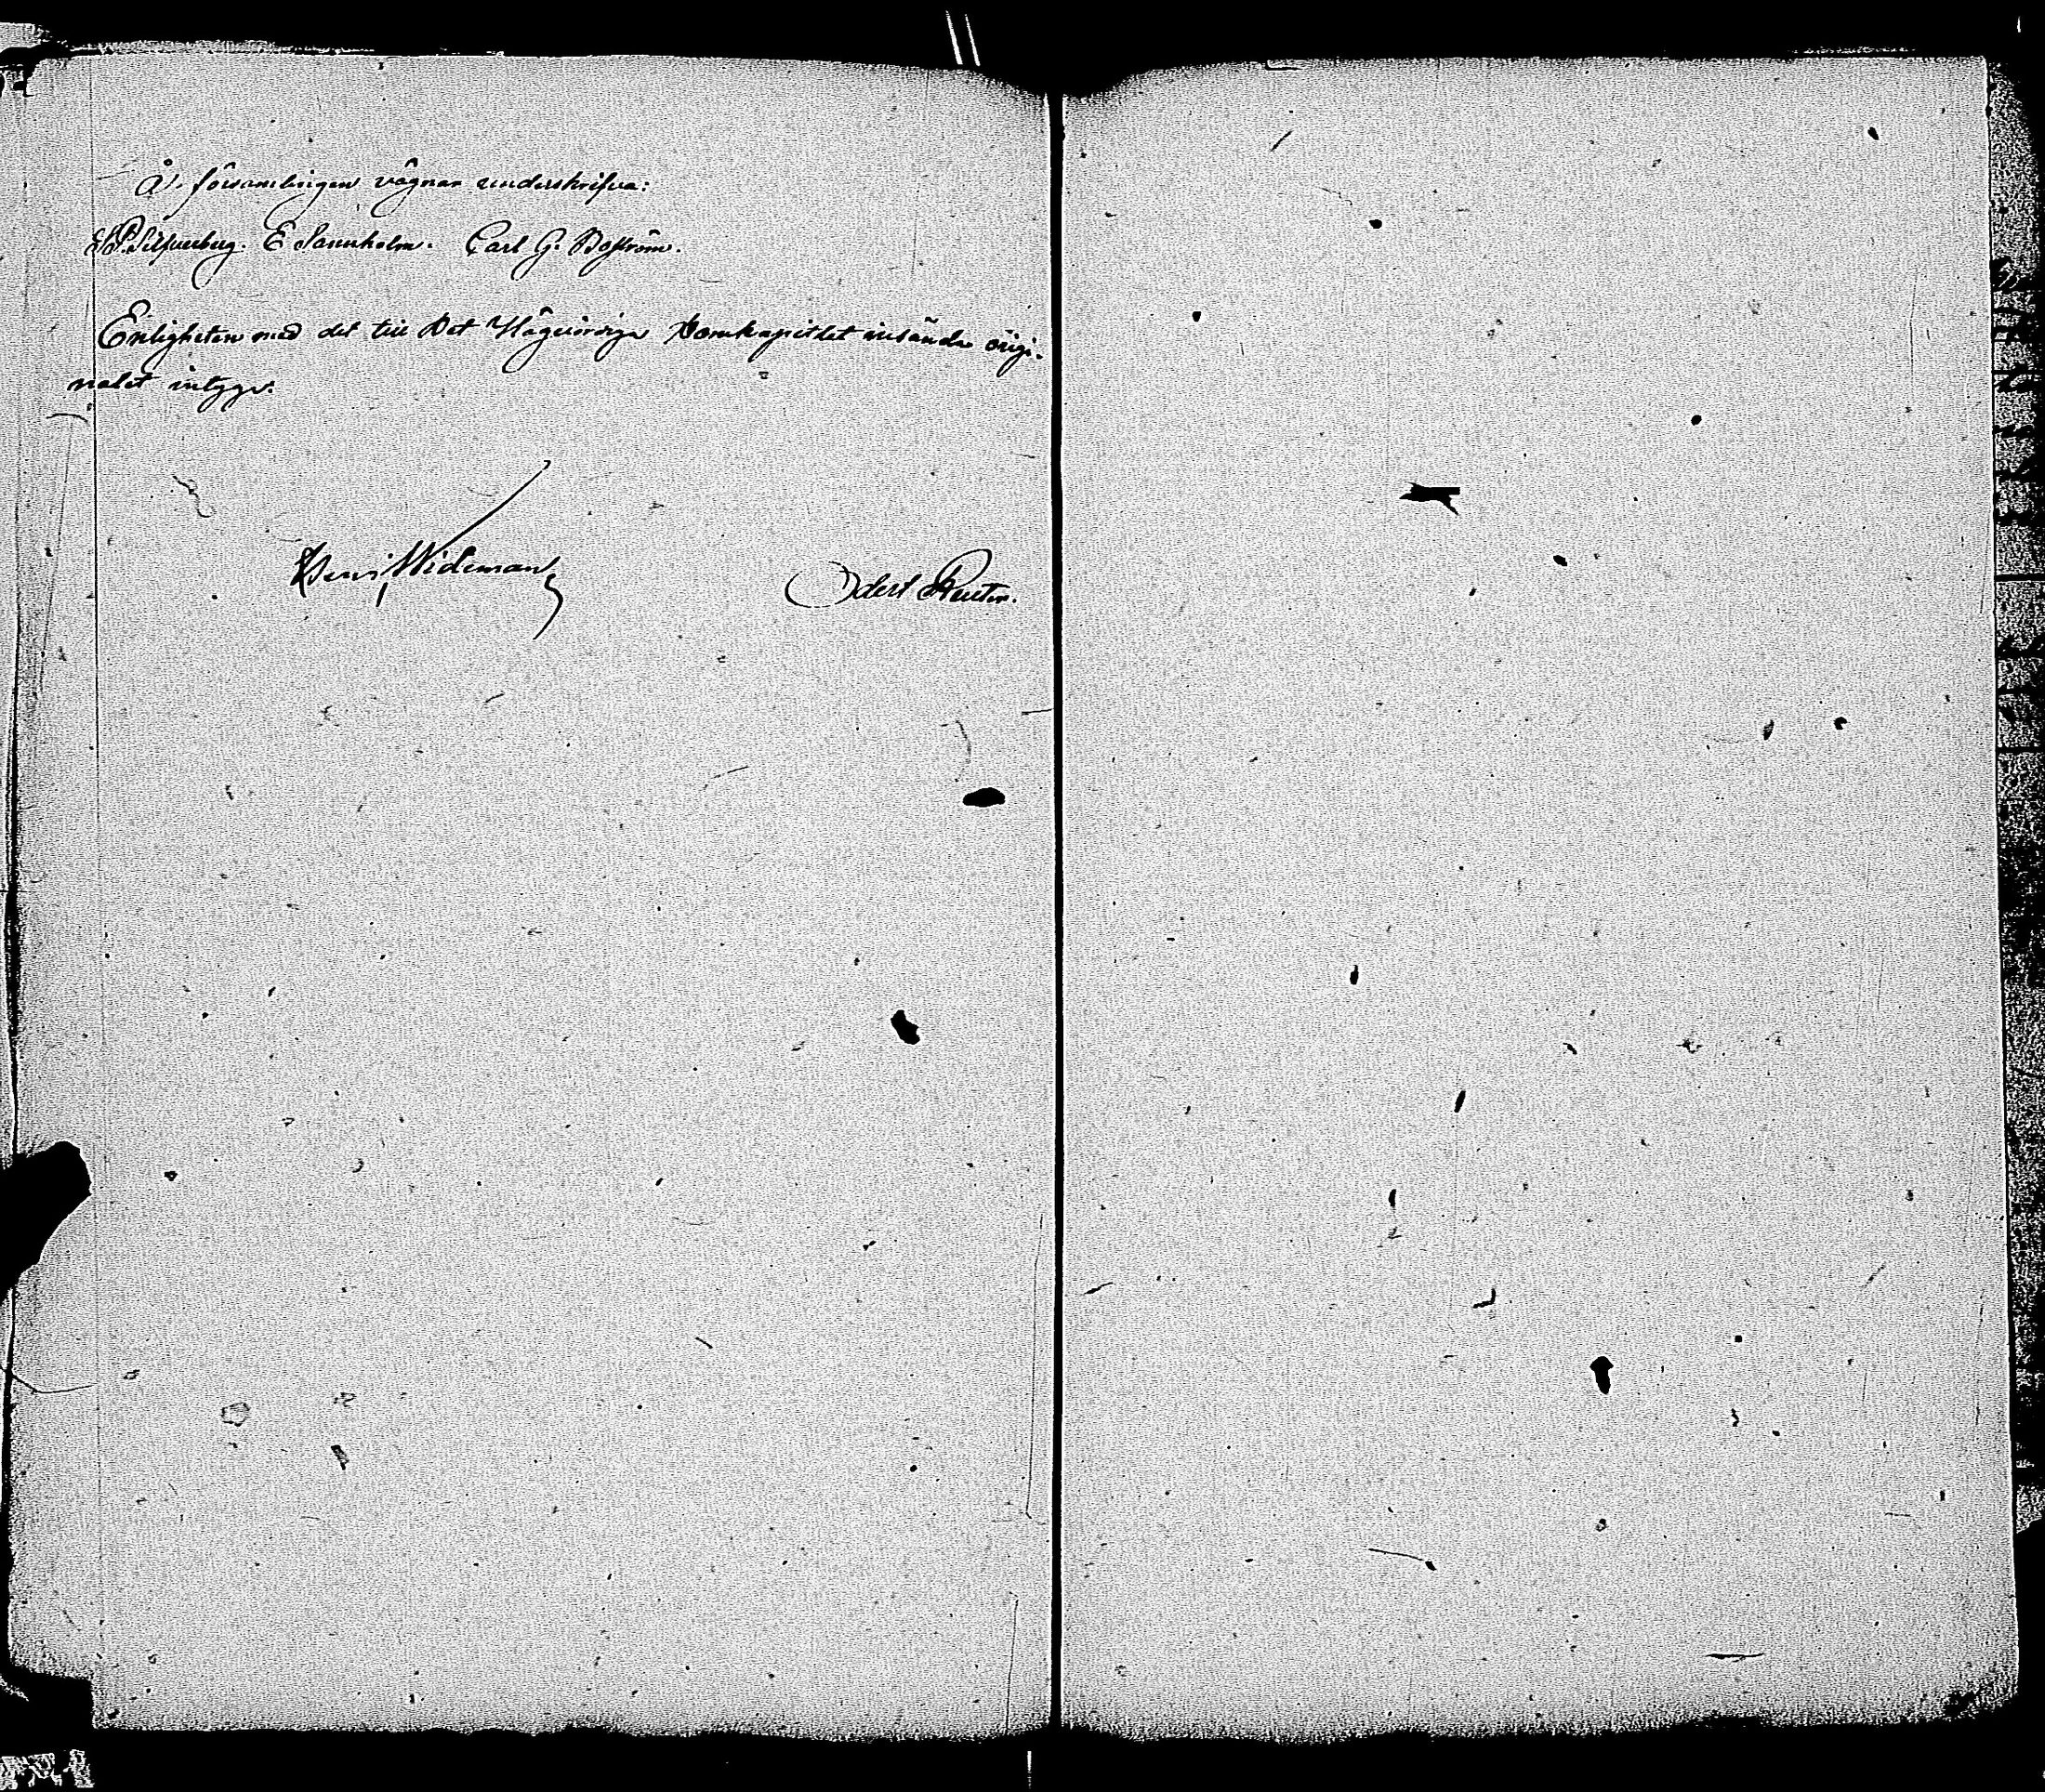 Å församlingens vägnar underskrifva:
Silfverberg. E Sannholm. Carl G. Boström.
Enligheten med det till Det Högvördiga Domkapitlet insända origi-
nalet intyga:
Wideman Odert Reuter.